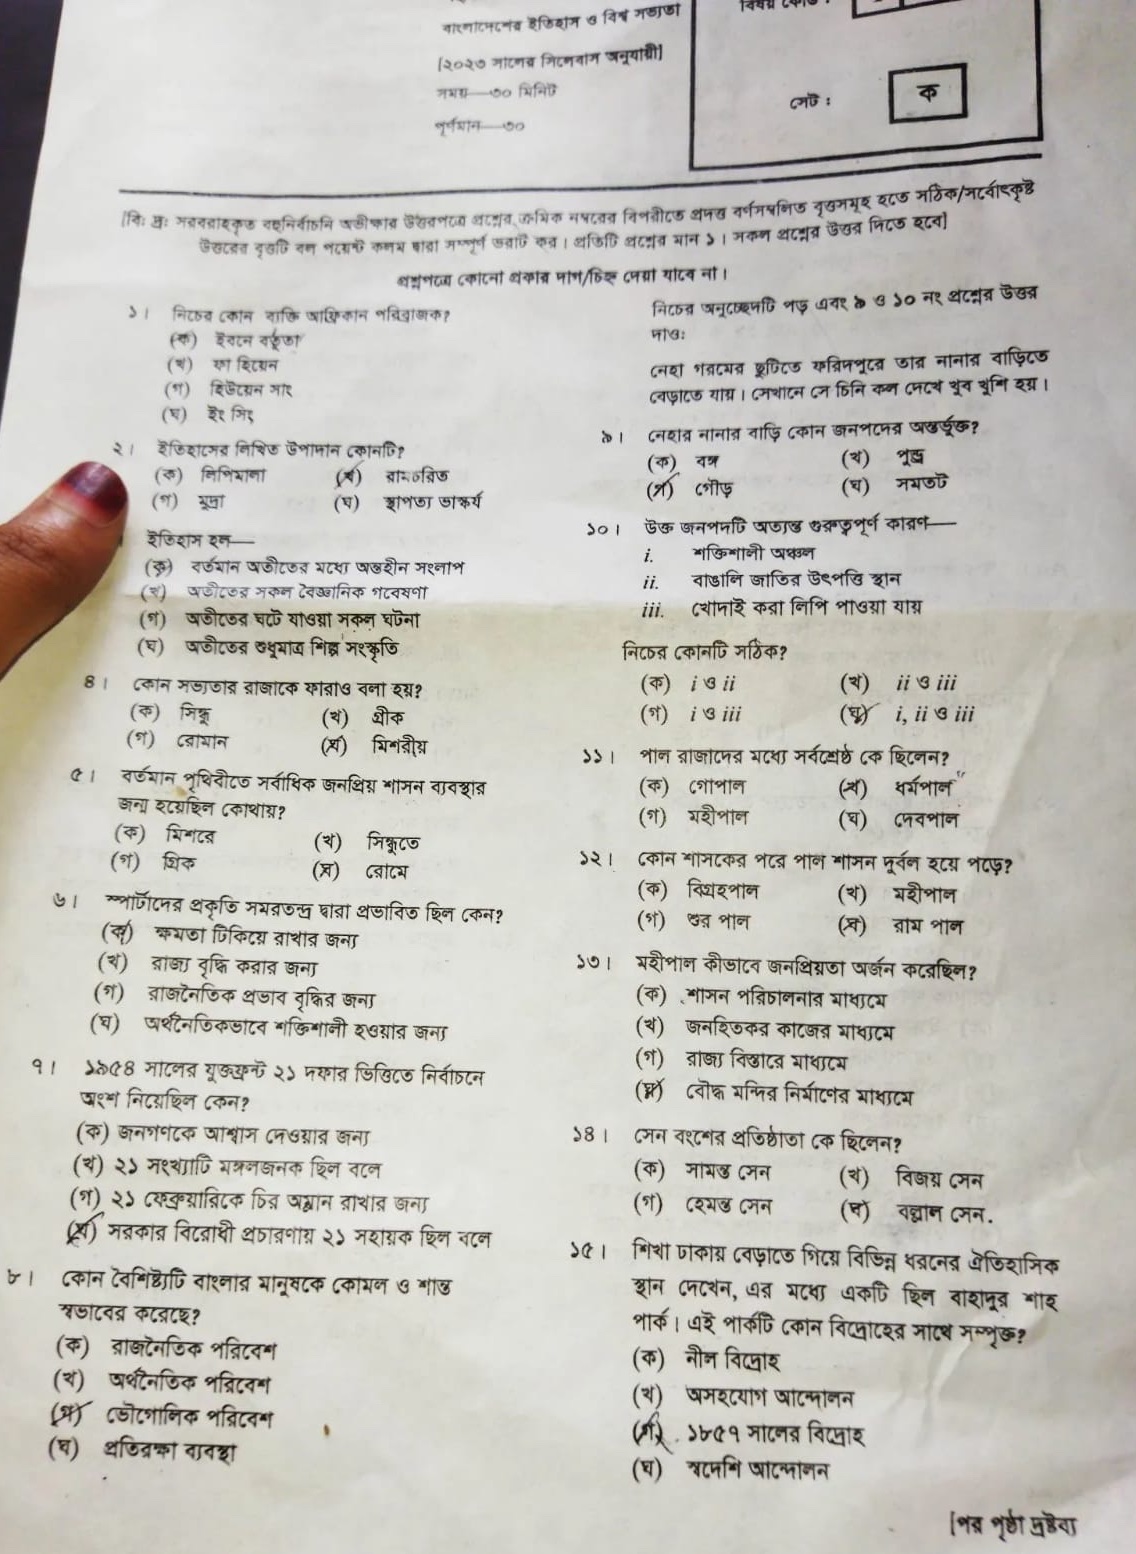 বাংলাদেশের ইতিহাস ও বিশ্ব সভ্যতা
[২০২৩ সালের সিলেবাস অনুযায়ী]
সময়—৩০ মিনিট
পূর্ণমান—৩০
বিষয় কোড :
সেট :
ক
[বি: দ্র: সরবরাহকৃত বহুনির্বাচনি অভীক্ষার উত্তরপত্রে প্রশ্নের ক্রমিক নম্বরের বিপরীতে প্রদত্ত বর্ণসম্বলিত বৃত্তসমূহ হতে সঠিক/সর্বোৎকৃষ্ট
উত্তরের বৃত্তটি বল পয়েন্ট কলম দ্বারা সম্পূর্ণ ভরাট কর। প্রতিটি প্রশ্নের মান ১। সকল প্রশ্নের উত্তর দিতে হবে]
প্রশ্নপত্রে কোনো প্রকার দাগ/চিহ্ন দেয়া যাবে না।
১। নিচের কোন ব্যক্তি আফ্রিকান পরিব্রাজক?
(ক) ইবনে বতুতা
(খ) ফা হিয়েন
(গ) হিউয়েন সাং
(ঘ) ইং সিং
২। ইতিহাসের লিখিত উপাদান কোনটি?
(ক) লিপিমালা (খ) রামচরিত
(গ) মুদ্রা (ঘ) স্থাপত্য ভাস্কর্য
ইতিহাস হল—
(ক) বর্তমান অতীতের মধ্যে অন্তহীন সংলাপ
(খ) অতীতের সকল বৈজ্ঞানিক গবেষণা
(গ) অতীতের ঘটে যাওয়া সকল ঘটনা
(ঘ) অতীতের শুধুমাত্র শিল্প সংস্কৃতি
৪। কোন সভ্যতার রাজাকে ফারাও বলা হয়?
(ক) সিন্ধু (খ) গ্রীক
(গ) রোমান (ঘ) মিশরীয়
৫। বর্তমান পৃথিবীতে সর্বাধিক জনপ্রিয় শাসন ব্যবস্থার
জন্ম হয়েছিল কোথায়?
(ক) মিশরে (খ) সিন্ধুতে
(গ) গ্রিক (ঘ) রোমে
৬। স্পার্টাদের প্রকৃতি সমরতন্ত্র দ্বারা প্রভাবিত ছিল কেন?
(ক) ক্ষমতা টিকিয়ে রাখার জন্য
(খ) রাজ্য বৃদ্ধি করার জন্য
(গ) রাজনৈতিক প্রভাব বৃদ্ধির জন্য
(ঘ) অর্থনৈতিকভাবে শক্তিশালী হওয়ার জন্য
৭। ১৯৫৪ সালের যুক্তফ্রন্ট ২১ দফার ভিত্তিতে নির্বাচনে
অংশ নিয়েছিল কেন?
(ক) জনগণকে আশ্বাস দেওয়ার জন্য
(খ) ২১ সংখ্যাটি মঙ্গলজনক ছিল বলে
(গ) ২১ ফেব্রুয়ারিকে চির অম্লান রাখার জন্য
(ঘ) সরকার বিরোধী প্রচারণায় ২১ সহায়ক ছিল বলে
৮। কোন বৈশিষ্ট্যটি বাংলার মানুষকে কোমল ও শান্ত
স্বভাবের করেছে?
(ক) রাজনৈতিক পরিবেশ
(খ) অর্থনৈতিক পরিবেশ
(গ) ভৌগোলিক পরিবেশ
(ঘ) প্রতিরক্ষা ব্যবস্থা
নিচের অনুচ্ছেদটি পড় এবং ৯ ও ১০ নং প্রশ্নের উত্তর
দাও:
নেহা গরমের ছুটিতে ফরিদপুরে তার নানার বাড়িতে
বেড়াতে যায়। সেখানে সে চিনি কল দেখে খুব খুশি হয়।
৯। নেহার নানার বাড়ি কোন জনপদের অন্তর্ভুক্ত?
(ক) বঙ্গ (খ) পুন্ড্র
(গ) গৌড় (ঘ) সমতট
১০। উক্ত জনপদটি অত্যন্ত গুরুত্বপূর্ণ কারণ—
i. শক্তিশালী অঞ্চল
ii. বাঙালি জাতির উৎপত্তি স্থান
iii. খোদাই করা লিপি পাওয়া যায়
নিচের কোনটি সঠিক?
(ক) i ও ii (খ) ii ও iii
(গ) i ও iii (ঘ) i, ii ও iii
১১। পাল রাজাদের মধ্যে সর্বশ্রেষ্ঠ কে ছিলেন?
(ক) গোপাল (খ) ধর্মপাল
(গ) মহীপাল (ঘ) দেবপাল
১২। কোন শাসকের পরে পাল শাসন দুর্বল হয়ে পড়ে?
(ক) বিগ্রহপাল (খ) মহীপাল
(গ) শুর পাল (ঘ) রাম পাল
১৩। মহীপাল কীভাবে জনপ্রিয়তা অর্জন করেছিল?
(ক) শাসন পরিচালনার মাধ্যমে
(খ) জনহিতকর কাজের মাধ্যমে
(গ) রাজ্য বিস্তারে মাধ্যমে
(ঘ) বৌদ্ধ মন্দির নির্মাণের মাধ্যমে
১৪। সেন বংশের প্রতিষ্ঠাতা কে ছিলেন?
(ক) সামন্ত সেন (খ) বিজয় সেন
(গ) হেমন্ত সেন (ঘ) বল্লাল সেন.
১৫। শিখা ঢাকায় বেড়াতে গিয়ে বিভিন্ন ধরনের ঐতিহাসিক
স্থান দেখেন, এর মধ্যে একটি ছিল বাহাদুর শাহ
পার্ক। এই পার্কটি কোন বিদ্রোহের সাথে সম্পৃক্ত?
(ক) নীল বিদ্রোহ
(খ) অসহযোগ আন্দোলন
(গ) ১৮৫৭ সালের বিদ্রোহ
(ঘ) স্বদেশি আন্দোলন
[পর পৃষ্ঠা দ্রষ্টব্য